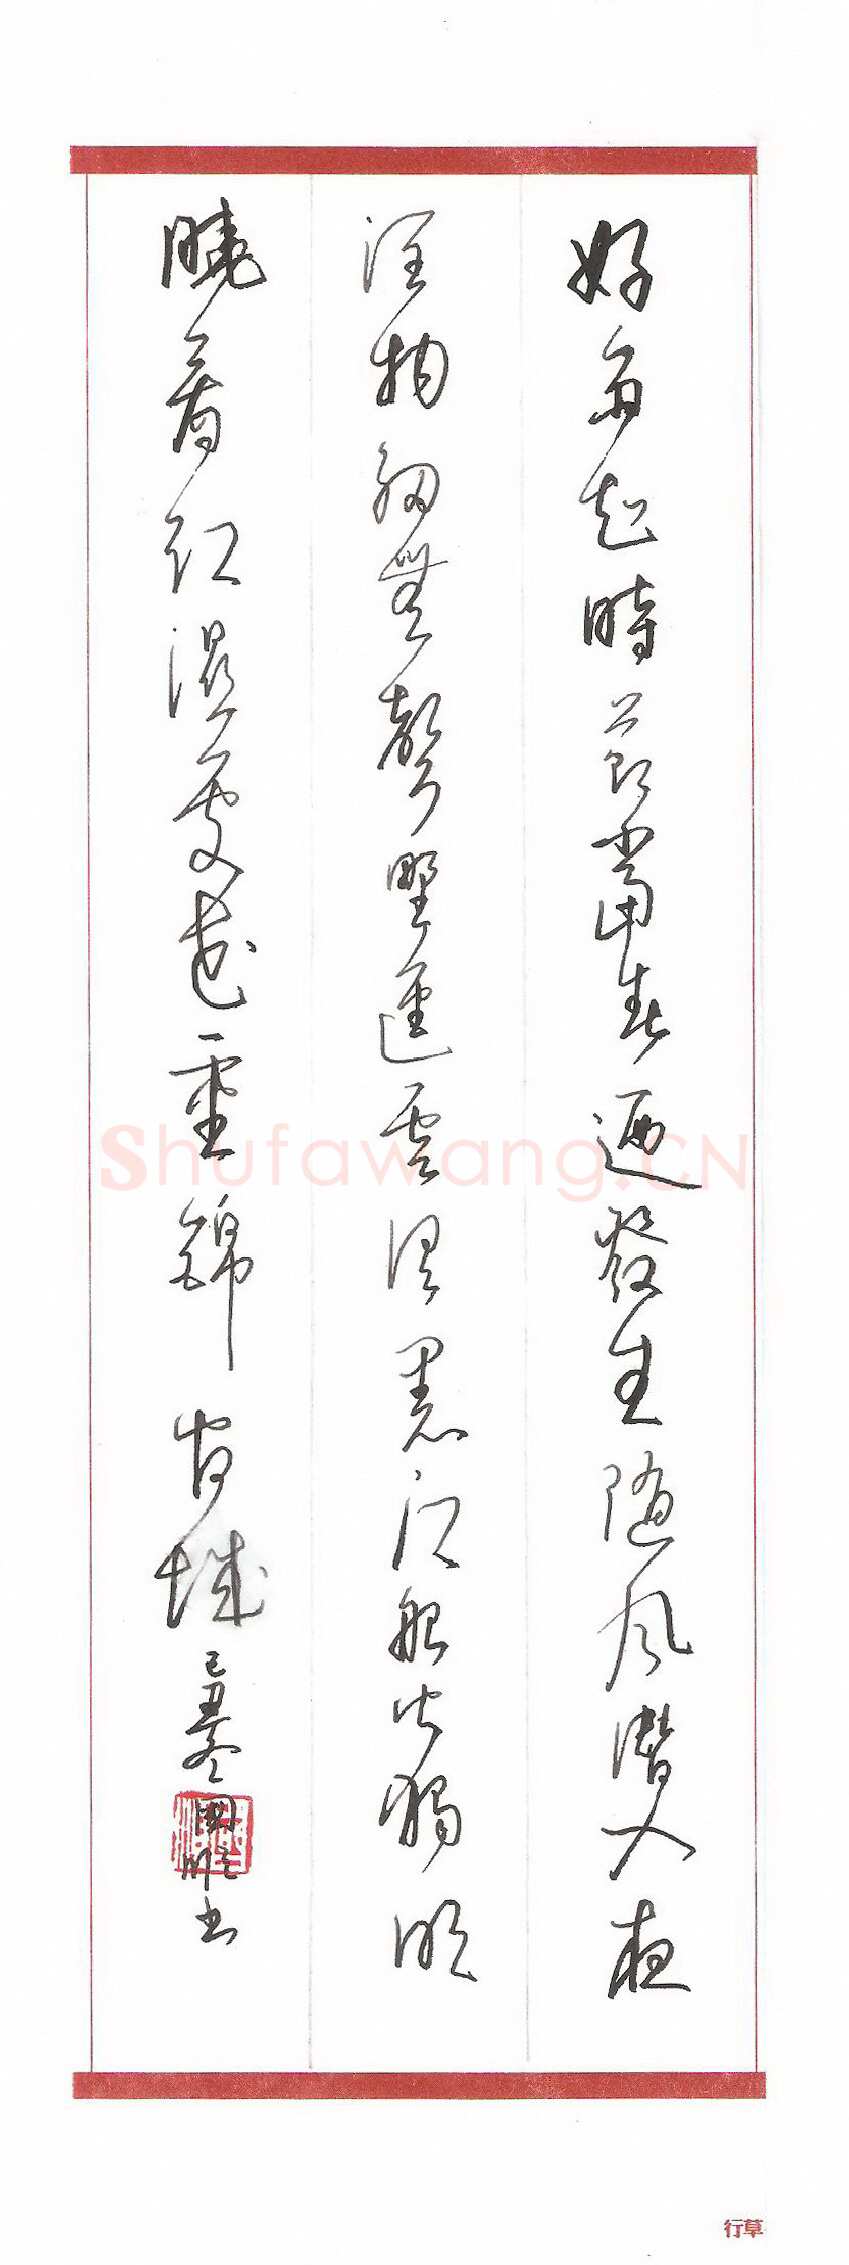 好雨知時節當春迺發生隨風潛入夜
潤物細無聲野逕雲俱黑江船火獨明
曉看紅濕處花重錦官城
己丑冬國書
Shufawang.CN
行草